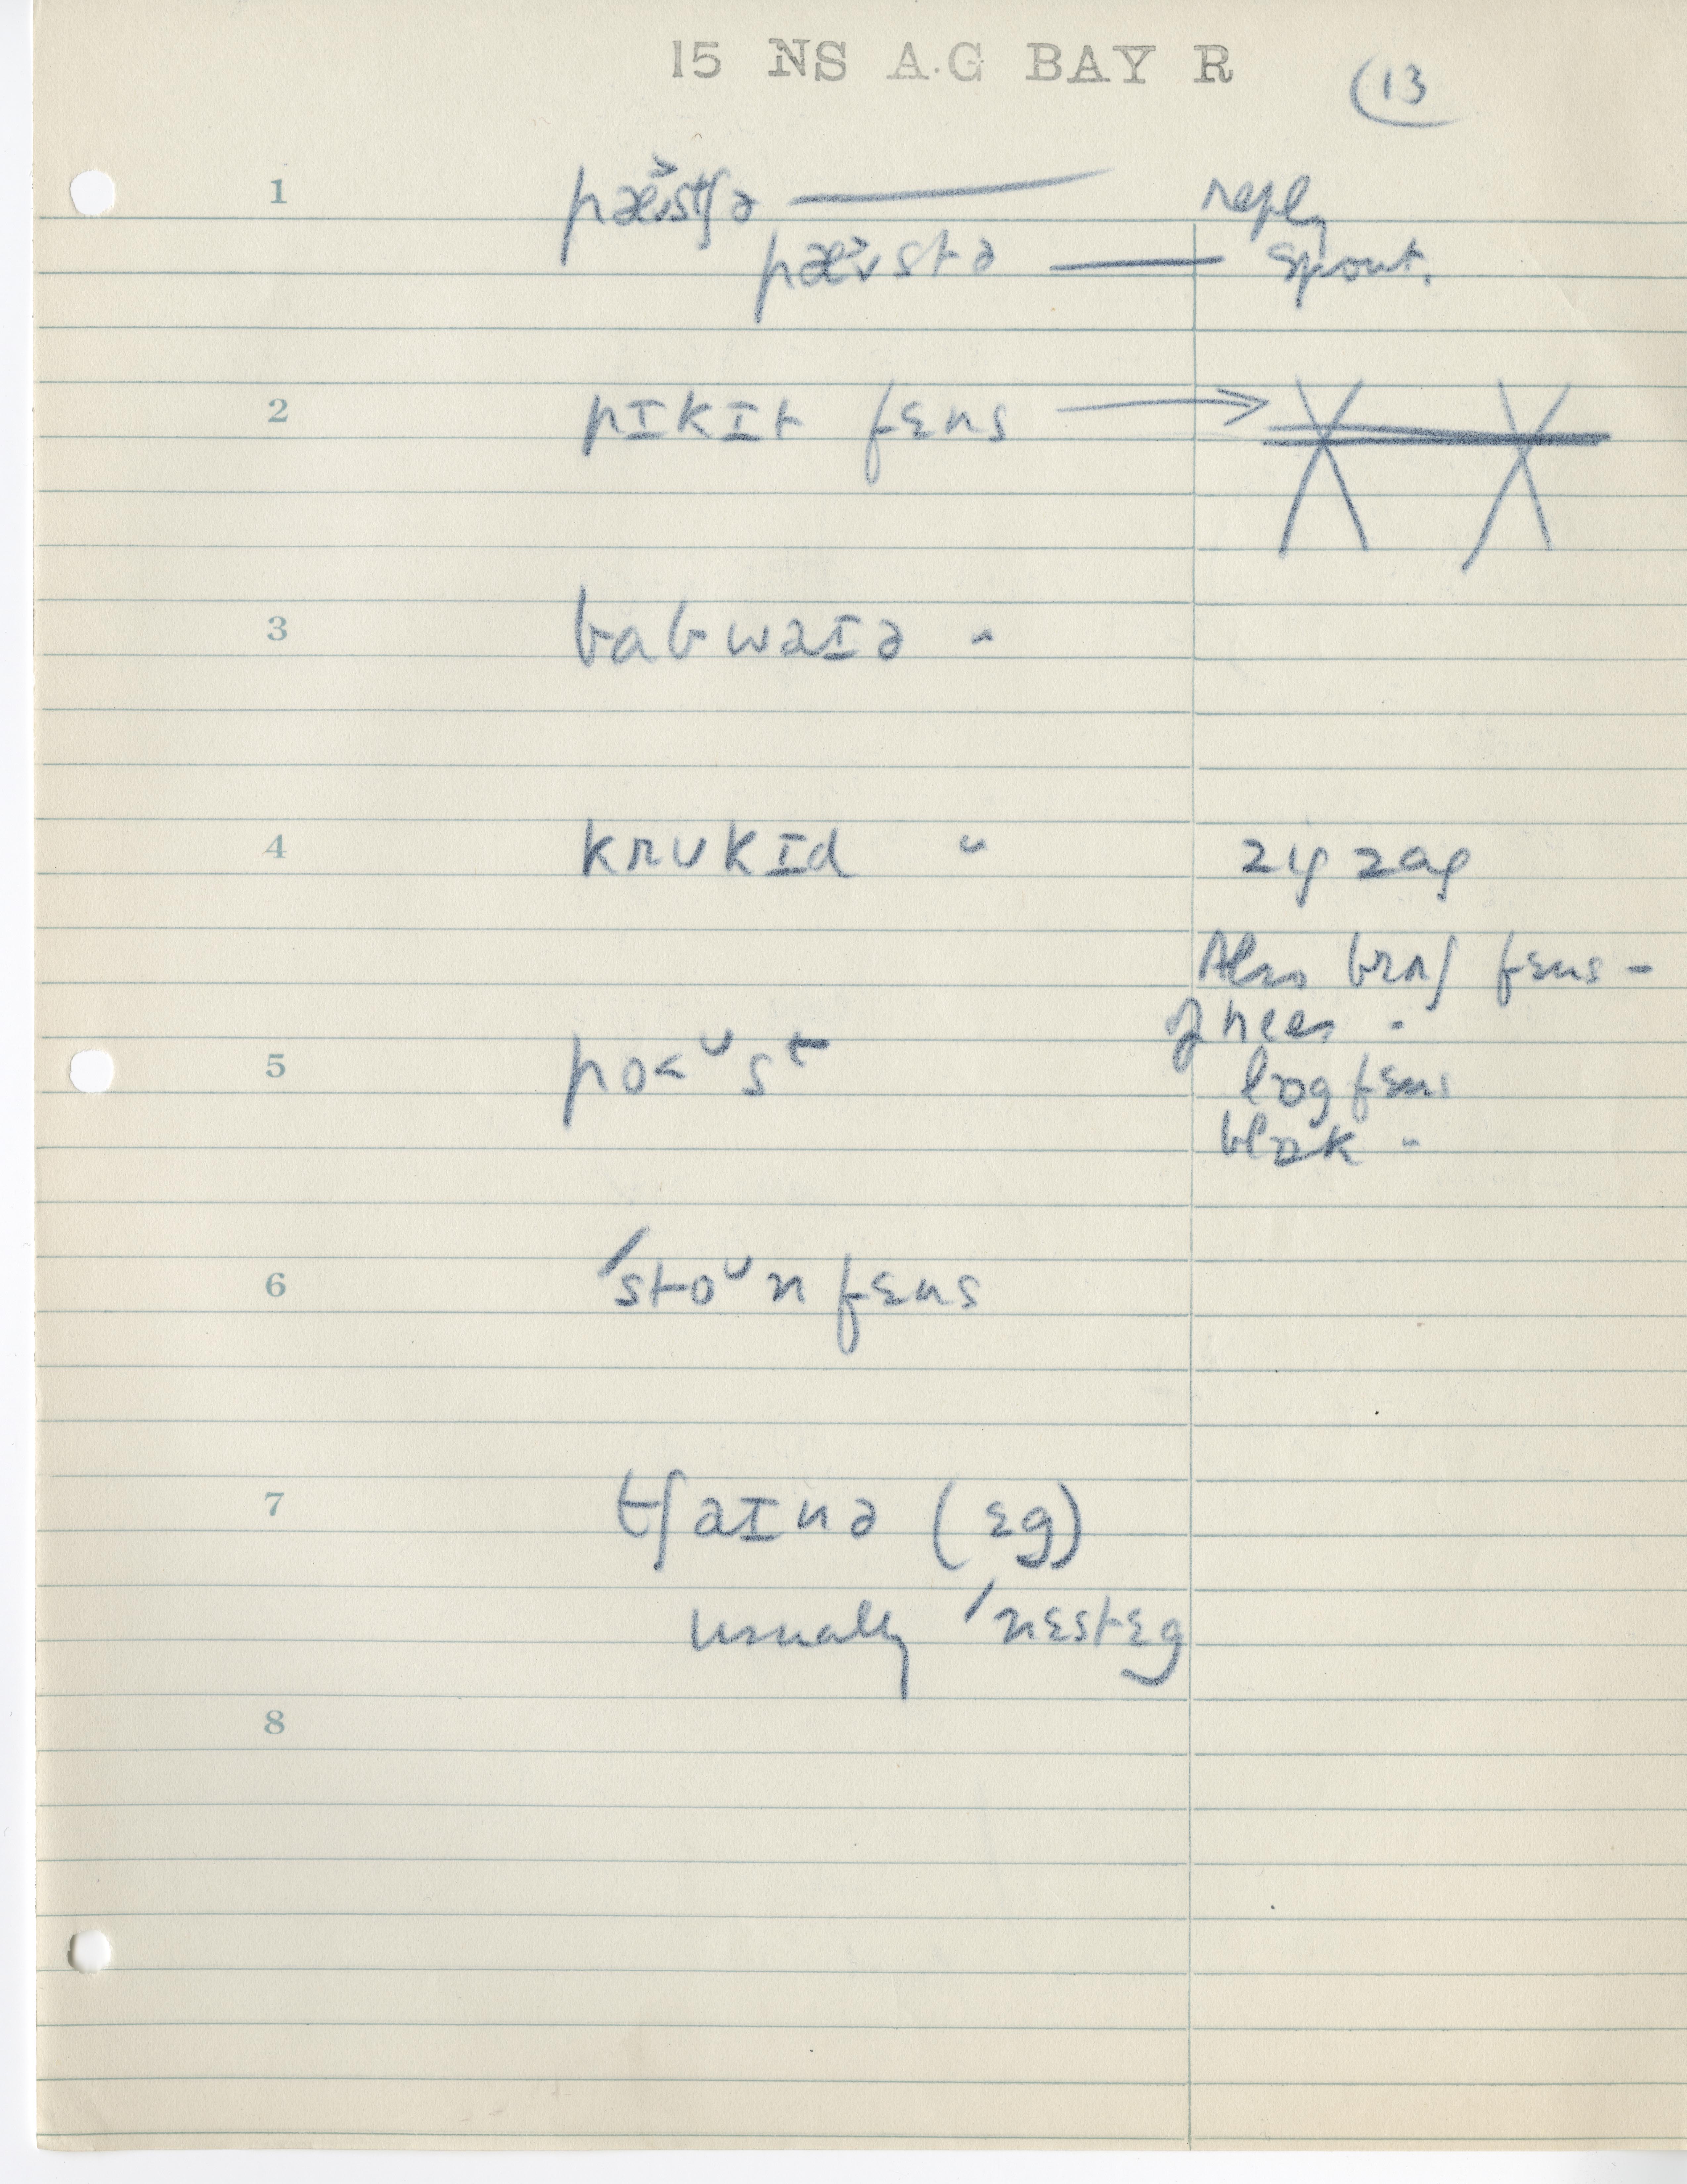 15 NS A.G BAY R
13
1 pæʊstʃə — reply
pæʊstə — spout.
2 pɪkɪt fɛns →
3 babwaɪə "
4 krukɪd " zig zag
Also brʌʃ fɛns -
5 po<ᴜst
log fɛns
blɒk "
6 ˈstoᴜn fɛns
7 tʃaɪnə (ɛg)
usually ˈnɛstɛg
8